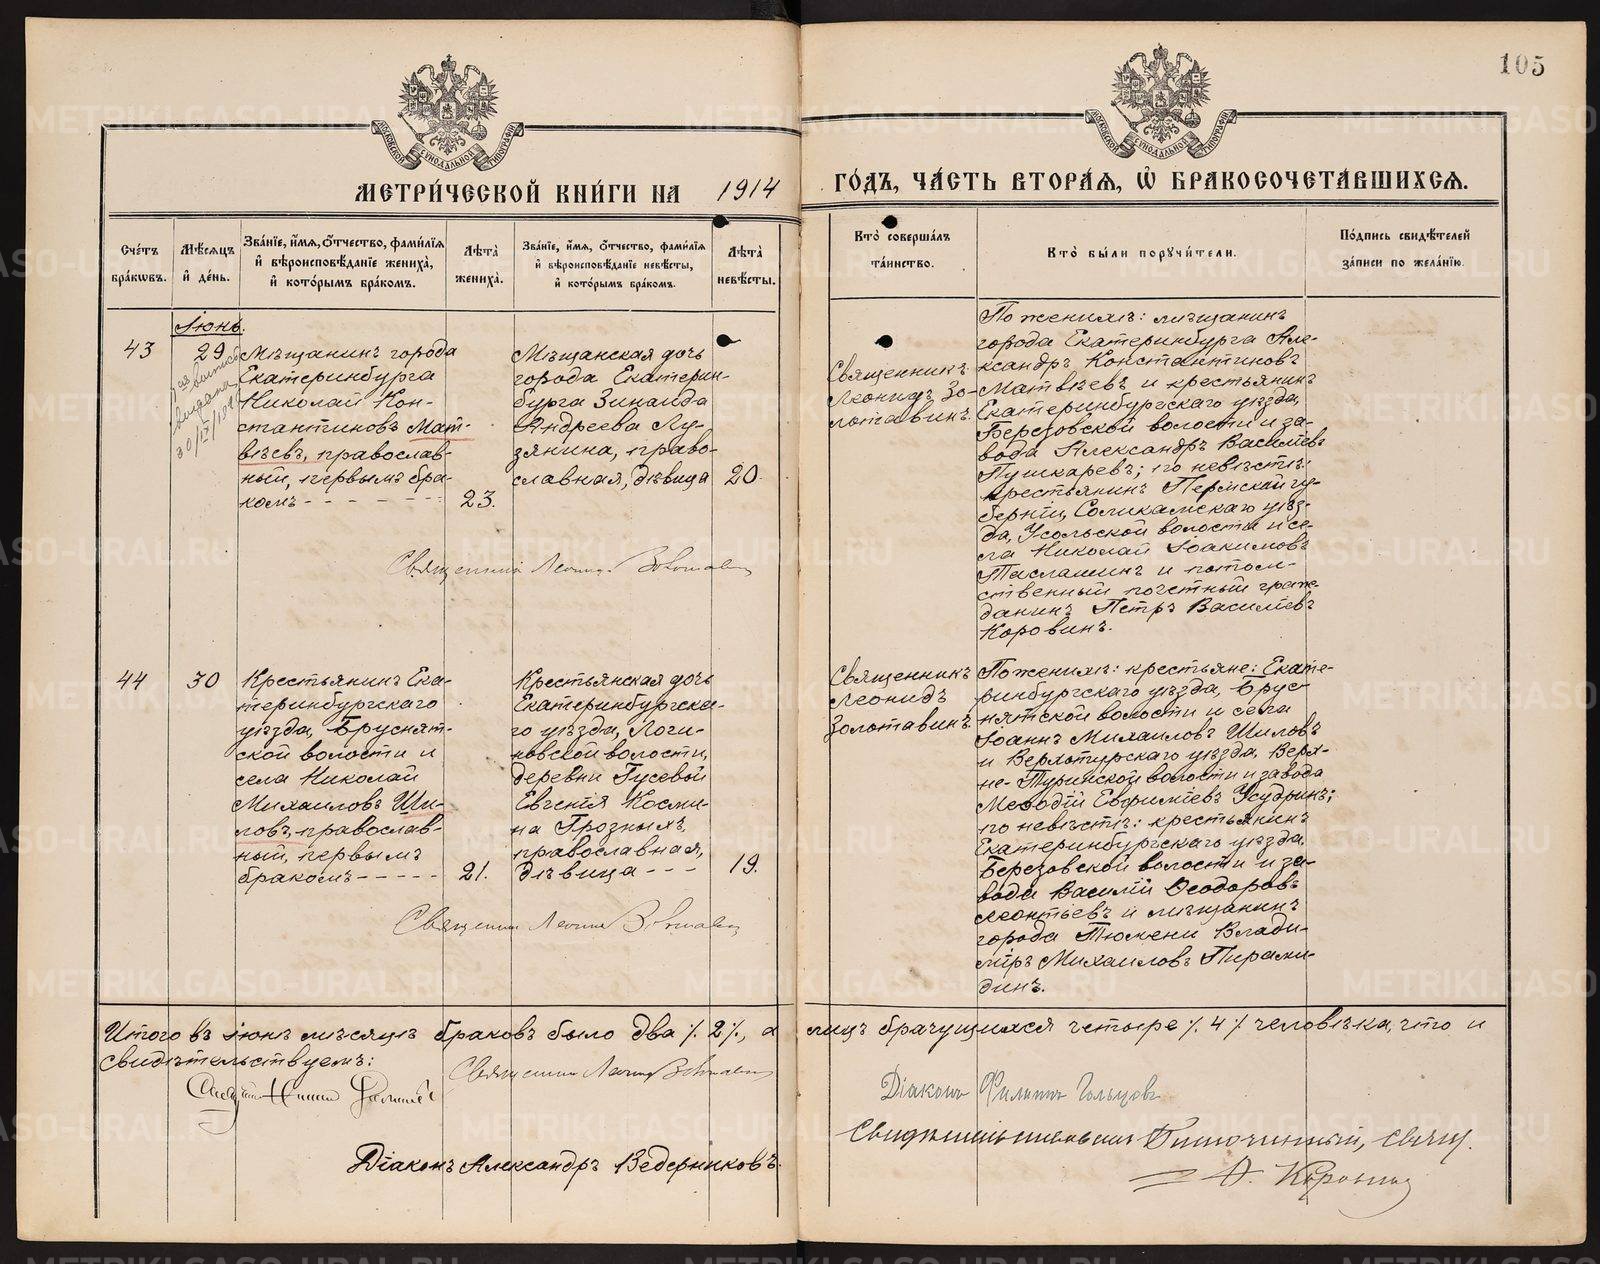 105
МОСКОВСКОЙ СУНОДАЛЬНОЙ ТИПОГРАФІИ
МОСКОВСКОЙ СУНОДАЛЬНОЙ ТИПОГРАФІИ
МЕТРИ́ЧЕСКОЙ КНИ́ГИ НА 1914 ГО́ДЪ, ЧА́СТЬ ВТОРА́Ѧ, Ѽ БРАКОСОЧЕТА́ВШИХСѦ.
Сче́тъ
бра́кѡвъ.
Мѣ́сѧцъ
и́ де́нь.
Зва́нїе, и́мѧ, ѻ́тчество, фами́лїѧ
и́ вѣроисповѣ́данїе жениха̀,
и́ кото́рымъ бра́комъ.
Лѣ́та̀
жениха̀.
Зва́нїе, и́мѧ, ѻ́тчество, фами́лїѧ
и́ вѣроисповѣ́данїе невѣ́сты,
и́ кото́рымъ бра́комъ.
Лѣ́та̀
невѣ́сты.
Кто̀ соверша́лъ
та́инство.
Кто̀ бы́ли порꙋчи́тели.
По́дпись свидѣ́телей
за́писи по жела́нїю.
Іюнь.
43
29
выдана
Мѣщанинъ города
Екатеринбурга
Николай Кон-
стантиновъ Мат-
вѣевъ, православ-
ный, первымъ бра-
комъ - - - - - -
23.
Мѣщанская дочь
города Екатерин-
бурга Зинаида
Андреева Лу-
зянина, право-
славная, дѣвица
20.
Священникъ
Леонидъ Зо-
лотавинъ.
По женихѣ: мѣщанинъ
города Екатеринбурга Але-
ксандръ Константиновъ
Матвѣевъ и крестьянинъ
Екатеринбургскаго уѣзда,
Березовской волости и за-
вода Александръ Василіевъ
Пушкаревъ; по невѣстѣ:
крестьянинъ Пермской гу-
берніи, Соликамскаго уѣз-
да, Усольской волости и се-
ла Николай Іоакимовъ
и потом-
ственный почетный граж-
данинъ Петръ Василіевъ
Коровинъ.
Священникъ Леонидъ Золотавинъ
44
30
Крестьянинъ Ека-
теринбургскаго
уѣзда, Бруснят-
ской волости и
села Николай
Михаиловъ Ши-
ловъ, православ-
ный, первымъ
бракомъ - - - - -
21.
Крестьянская дочь
Екатеринбургска-
го уѣзда, Логи-
новской волости,
деревни Гусевой
Евгенія Косми-
на Грозныхъ,
православная,
дѣвица - - -
19.
Священникъ
Леонидъ
Золотавинъ.
По женихѣ: крестьяне: Екате-
ринбургскаго уѣзда, Брус-
нятской волости и села
Іоаннъ Михаиловъ Шиловъ
и Верхотурскаго уѣзда, Верх-
не-Туринской волости и завода
Меѳодій Евѳиміевъ Усудринъ;
по невѣстѣ: крестьянинъ
Екатеринбургскаго уѣзда,
Березовской волости и за-
вода Василій Ѳеодоровъ
Леонтьевъ и мѣщанинъ
города Тюмени Влади-
міръ Михаиловъ Пирами-
динъ.
Священникъ Леонидъ Золотавинъ
Итого въ іюнѣ мѣсяцѣ браковъ было два ⁒ 2 ⁒, а лицъ брачущихся четыре ⁒ 4 ⁒ человѣка, что и
свидѣтельствуемъ:
Священникъ Леонидъ Золотавинъ
Діаконъ Филиппъ Гольцовъ
Діаконъ Александръ Ведерниковъ.
Благочинный, свящ.
Коровинъ
METRIKI.GASO-URAL.RU